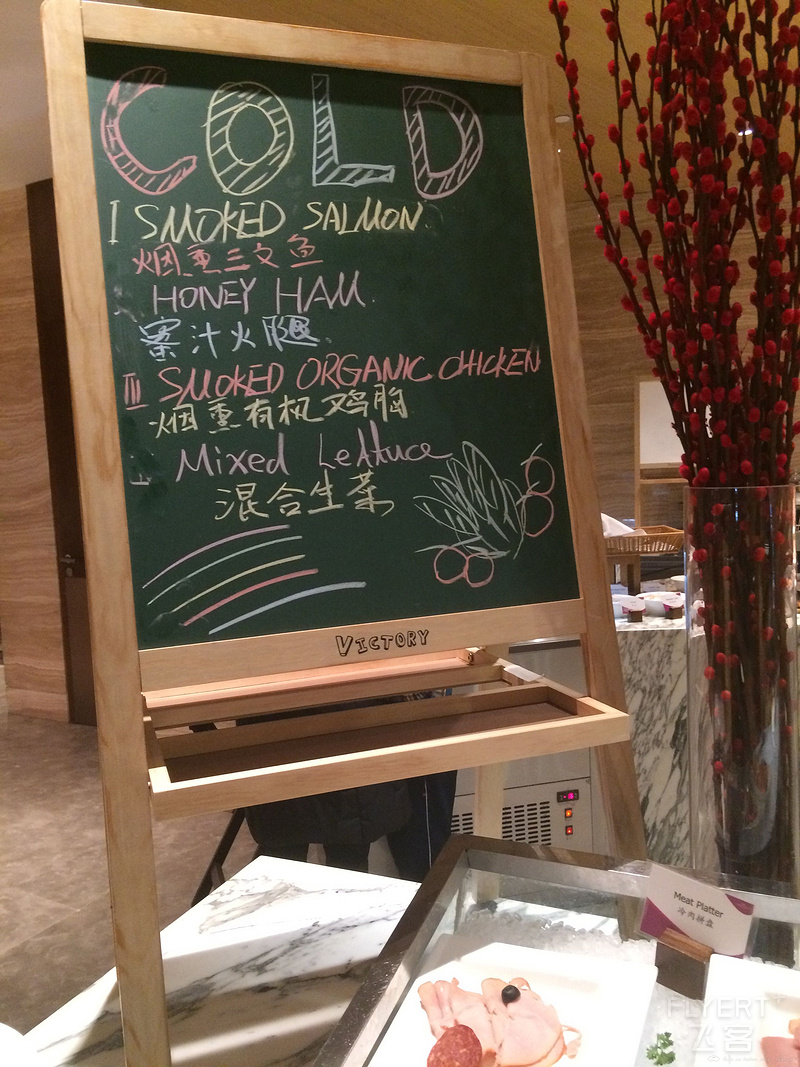 COLD
I SMOKED SALMON.
烟熏三文鱼
HONEY HAM.
蜜汁火腿.
III SMOKED ORGANIC CHICKEN
烟熏有机鸡胸
Mixed Lettuce
混合生菜
VICTORY
Meat Platter
冷肉拼盘
FLYERT
飞客